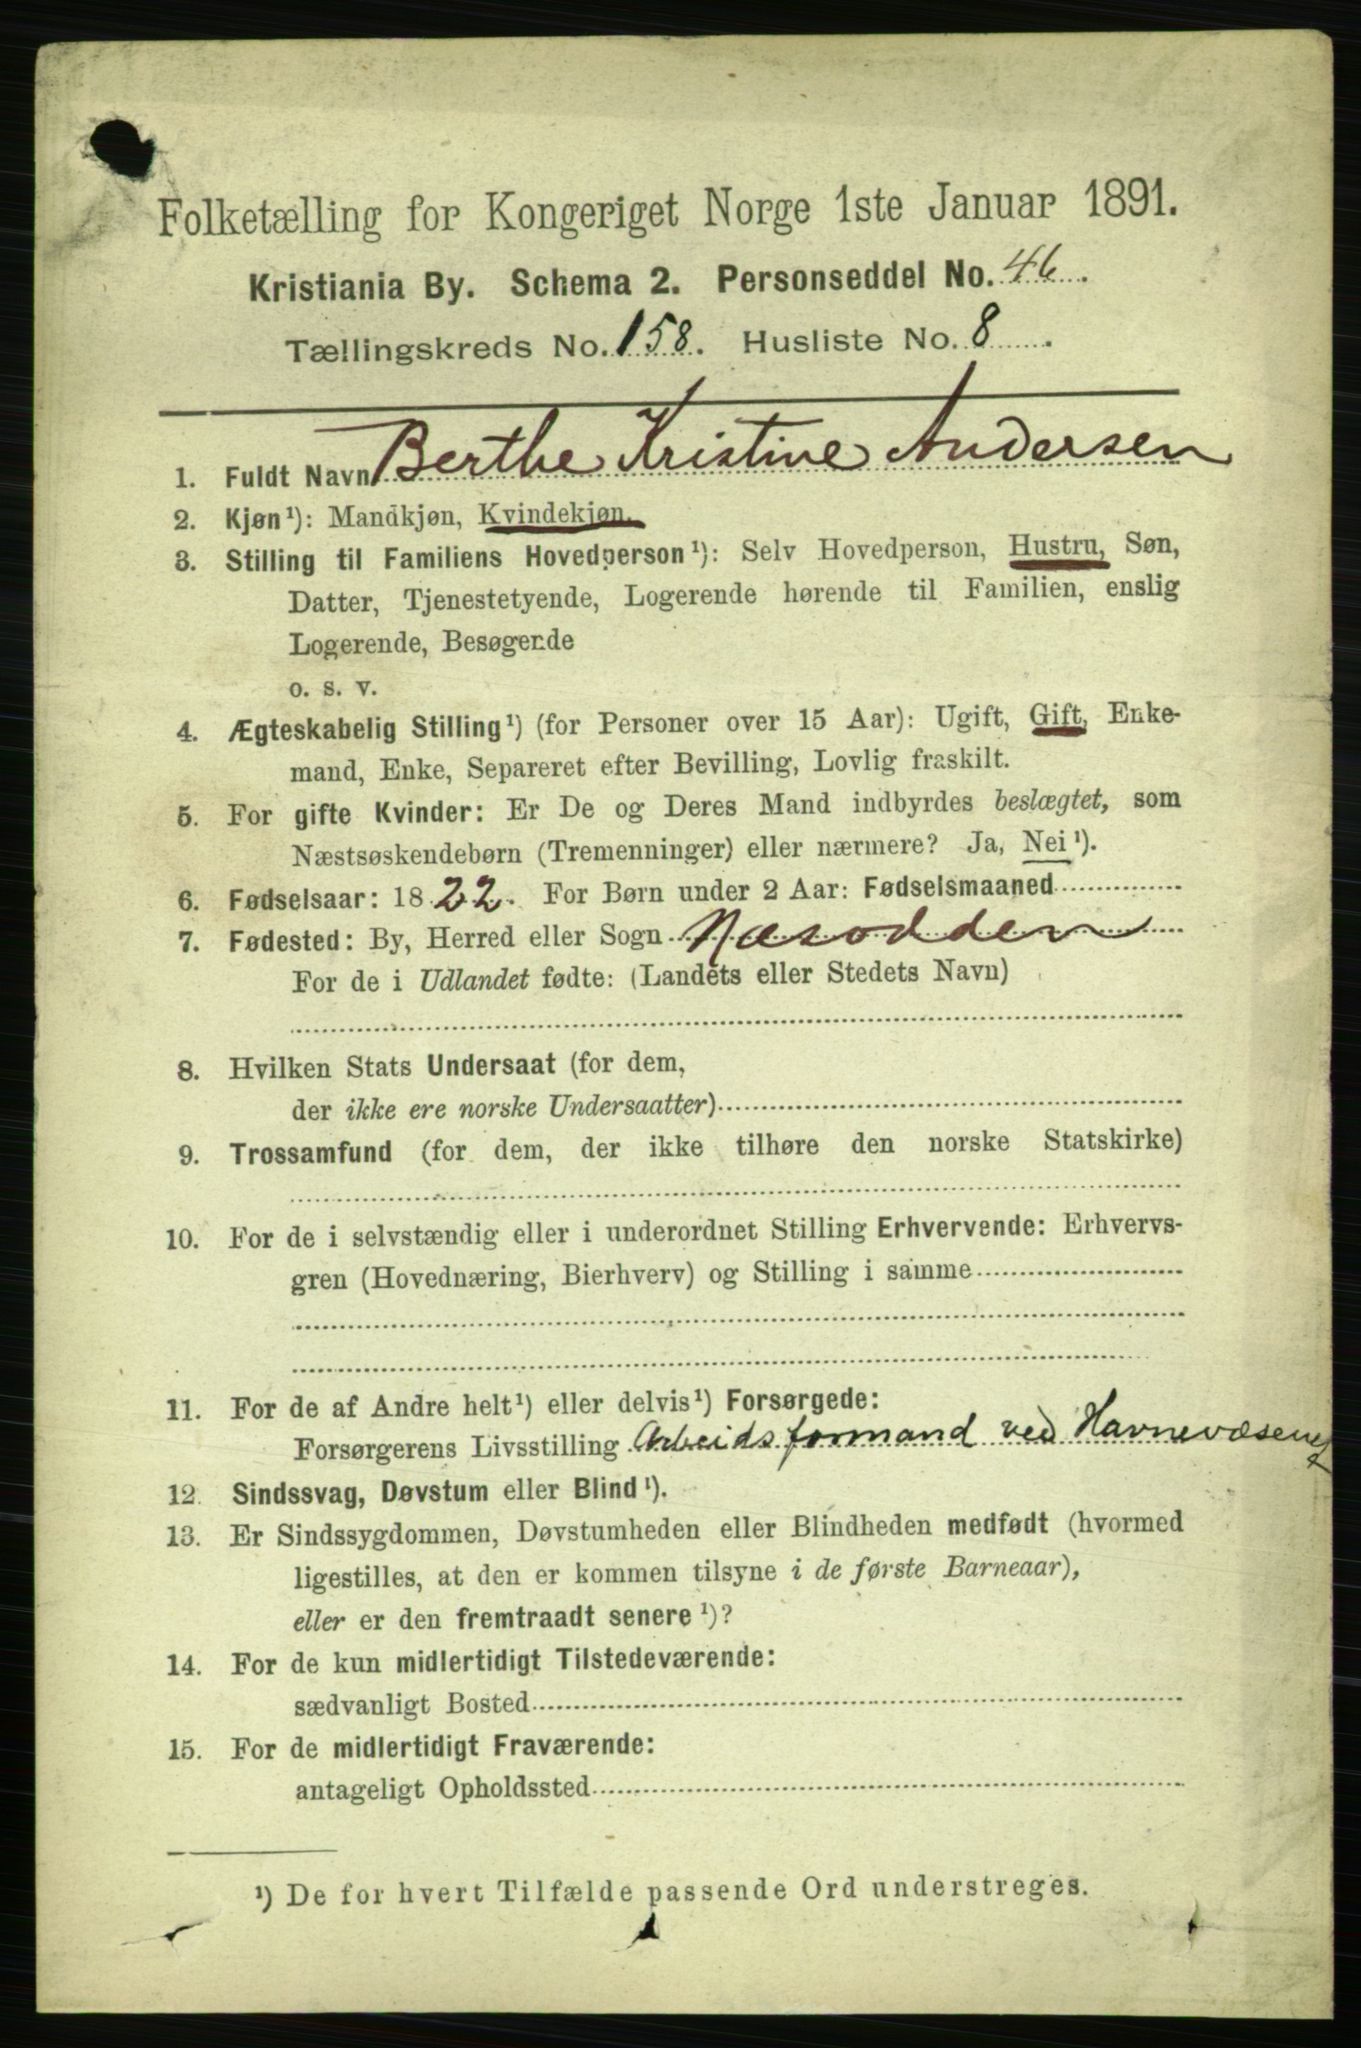 Folketælling for Kongeriget Norge 1ste Januar 1891.
Kristiania By. Schema 2. Personseddel No. 46.
Tællingskreds No. 158. Husliste No. 8.
1. Fuldt Navn Berthe Kristine Andersen
2. Kjøn¹): Mandkjøn, Kvindekjøn.
3. Stilling til Familiens Hovedperson¹): Selv Hovedperson, Hustru, Søn,
Datter, Tjenestetyende, Logerende hørende til Familien, enslig
Logerende, Besøgende
o. s. v.
4. Ægteskabelig Stilling¹) (for Personer over 15 Aar): Ugift, Gift, Enke-
mand, Enke, Separeret efter Bevilling, Lovlig fraskilt.
5. For gifte Kvinder: Er De og Deres Mand indbyrdes beslægtet, som
Næstsøskendebørn (Tremenninger) eller nærmere? Ja, Nei¹).
6. Fødselsaar: 1822. For Børn under 2 Aar: Fødselsmaaned
7. Fødested: By, Herred eller Sogn Næsodden
For de i Udlandet fødte: (Landets eller Stedets Navn)
8. Hvilken Stats Undersaat (for dem,
der ikke ere norske Undersaatter)
9. Trossamfund (for dem, der ikke tilhøre den norske Statskirke)
10. For de i selvstændig eller i underordnet Stilling Erhvervende: Erhvervs-
gren (Hovednæring, Bierhverv) og Stilling i samme
11. For de af Andre helt¹) eller delvis¹) Forsørgede:
Forsørgerens Livsstilling Arbeidsformand ved Havnevæsenet
12. Sindssvag, Døvstum eller Blind¹).
13. Er Sindssygdommen, Døvstumheden eller Blindheden medfødt (hvormed
ligestilles, at den er kommen tilsyne i de første Barneaar),
eller er den fremtraadt senere¹)?
14. For de kun midlertidigt Tilstedeværende:
sædvanligt Bosted
15. For de midlertidigt Fraværende:
antageligt Opholdssted
¹) De for hvert Tilfælde passende Ord understreges.